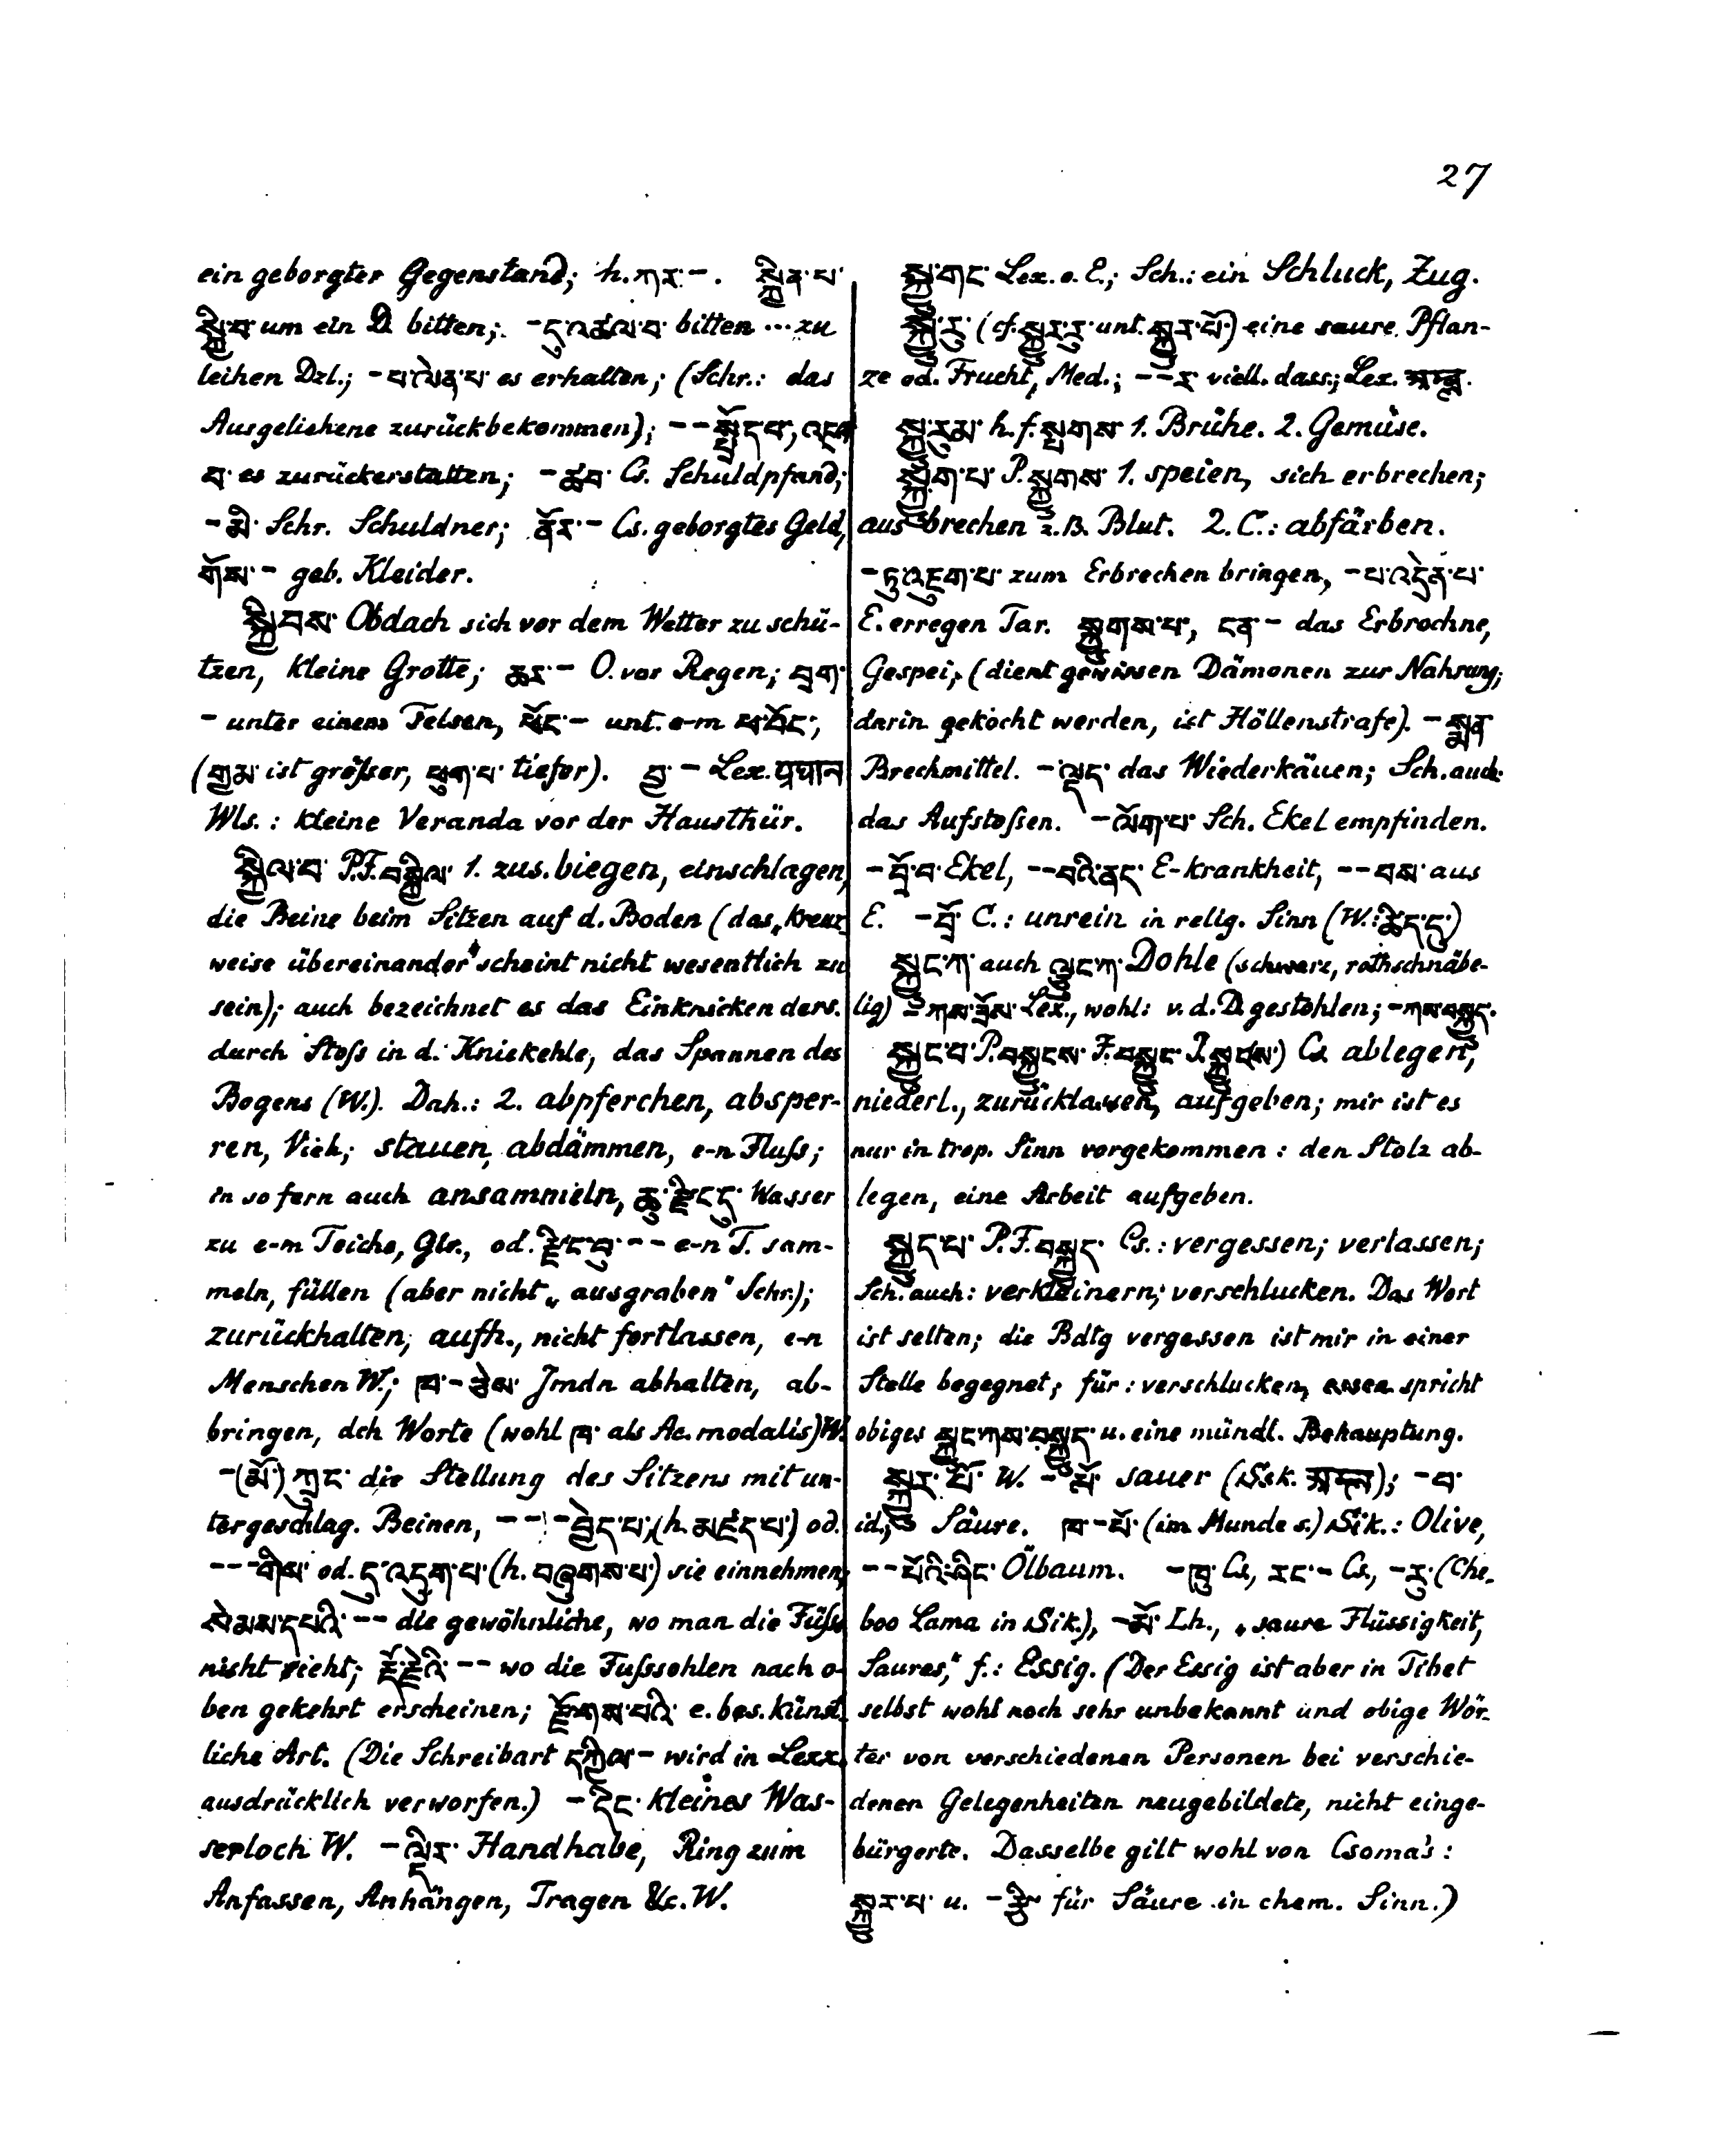 27
ein geborgter Gegenstand; h. ཀར་ –. སྐྱིན་པ་
སྐྱི་བ་ um ein D bitten; – དུ་འཚལ་བ་ bitten ... zu
leihen Dzl.; – པ་ལེན་པ་ es erhalten; (Schr.: das
Ausgeliehene zurückbekommen); – –
བ་ es zurückerstatten; – ཚབ་ Cs. Schuldpfand;
– མི་ Schr. Schuldner; ནོར་ – Cs. geborgtes Geld,
གོས་ – geb. Kleider.
སྐྱིབས་ Obdach sich vor dem Wetter zu schü-
tzen, kleine Grotte; ཆར་ – O. vor Regen; བྲག་
– unter einem Felsen, ཕོང་ – unt. e-m ཕ་བོང་,
(གྲམ་ ist größer, ཕུག་པ་ tiefer). བྱ་ – Lex.
Wls.: kleine Veranda vor der Hausthür.
སྐྱིལ་བ་ P.F. བསྐྱིལ་ 1. zus. biegen, einschlagen,
die Beine beim Sitzen auf d. Boden (das „kreuz-
weise übereinander" scheint nicht wesentlich zu
sein); auch bezeichnet es das Einknicken ders.
durch Stoß in d. Kniekehle, das Spannen des
Bogens (W.). Dah.: 2. abpferchen, absper-
ren, Vieh; stauen, abdämmen, e-n Fluß;
in so fern auch ansammeln, ཆུ་རྫིང་དུ་ Wasser
zu e-m Teiche, Glr., od. རྫིང་བུ་ – – e-n T. sam-
meln, füllen (aber nicht „ausgraben" Schr.);
zurückhalten, aufh., nicht fortlassen, e-n
Menschen W.; ཁ་ – Jmdn abhalten, ab-
bringen, dch Worte (wohl ཁ་ als Ac. modalis) W.
– (མོ་) ཀྲུང་ die Stellung des Sitzens mit un-
tergeschlag. Beinen, – – – བྱེད་པ་, (h. མཛད་པ་) od.
– – – གིས་ od. དུ་འདུག་པ་ (h. བཞུགས་པ་) sie einnehmen;
སེམས་དཔའི་ – – die gewöhnliche, wo man die Füße
nicht sieht; རྡོ་རྗེའི་ – – wo die Fußsohlen nach o-
ben gekehrt erscheinen; རྫོགས་པའི་ e. bes. künst-
liche Art. (Die Schreibart དཀྱིལ་ – wird in Lexx.
ausdrücklich verworfen.) – དིང་ kleines Was-
serloch W. – ལྡིར་ Handhabe, Ring zum
Anfassen, Anhängen, Tragen &c. W.
སྐྱུ་གང་ Lex. o. E.; Sch.: ein Schluck, Zug.
སྐྱུ་རུ་ (cf. སྐྱུར་རུ་ unt. སྐྱུར་པོ་) eine saure Pflan-
ze od. Frucht, Med.; – – ར་ viell. dass.; Lex.
སྐྱུ་རུམ་ h. f. སྤགས་ 1. Brühe. 2. Gemüse.
སྐྱུག་པ་ P. སྐྱུགས་ 1. speien, sich erbrechen;
aus brechen z.B. Blut. 2. C.: abfärben.
– ཏུ་འཇུག་པ་ zum Erbrechen bringen, – པ་འདྲེན་པ་
E. erregen Tar. སྐྱུགས་པ་, ངན་ – das Erbrochne,
Gespei, (dient gewissen Dämonen zur Nahrung;
darin gekocht werden, ist Höllenstrafe). – སྨན་
Brechmittel. – ལྡད་ das Wiederkäuen; Sch. auch:
das Aufstoßen. – ལོག་པ་ Sch. Ekel empfinden.
– བྲོ་བ་ Ekel, – – བའི་ནད་ E-krankheit, – – བས་ aus
E. – བྲོ་ C.: unrein in relig. Sinn (W.:
སྐྱུང་ཀ་ auch ལྕུང་ཀ་ Dohle (schwarz, rothschnäbe-
lig) – ཀས་ Lex., wohl: v. d. D. gestohlen; – ཀས་བསྐྱུད་.
སྐྱུང་བ་ P. བསྐྱུངས་ F. བསྐྱུང་ Cs. ablegen,
niederl., zurücklassen, aufgeben; mir ist es
nur in trop. Sinn vorgekommen: den Stolz ab-
legen, eine Arbeit aufgeben.
སྐྱུད་པ་ P.F. བསྐྱུད་ Cs.: vergessen; verlassen;
Sch. auch: verkleinern; verschlucken. Das Wort
ist selten; die Bdtg vergessen ist mir in einer
Stelle begegnet; für: verschlucken, spricht
obiges སྐྱུང་ཀས་བསྐྱུད་ u. eine mündl. Behauptung.
སྐྱུར་པོ་ W. – མོ་ sauer (Ssk.); – བ་
id., Säure. ཁ་ – པོ་ (im Munde s.) Sik.: Olive,
– – པོའི་ཤིང་ Ölbaum. – ཁུ་ Cs, རང་ – Cs, – རུ་ (Che-
boo Lama in Sik.), – མོ་ Lh., „saure Flüssigkeit,
Saures," f.: Essig. (Der Essig ist aber in Tibet
selbst wohl noch sehr unbekannt und obige Wör-
ter von verschiedenen Personen bei verschie-
denen Gelegenheiten neugebildete, nicht einge-
bürgerte. Dasselbe gilt wohl von Csoma's:
སྐྱུར་པ་ u. – རྩི་ für Säure in chem. Sinn.)